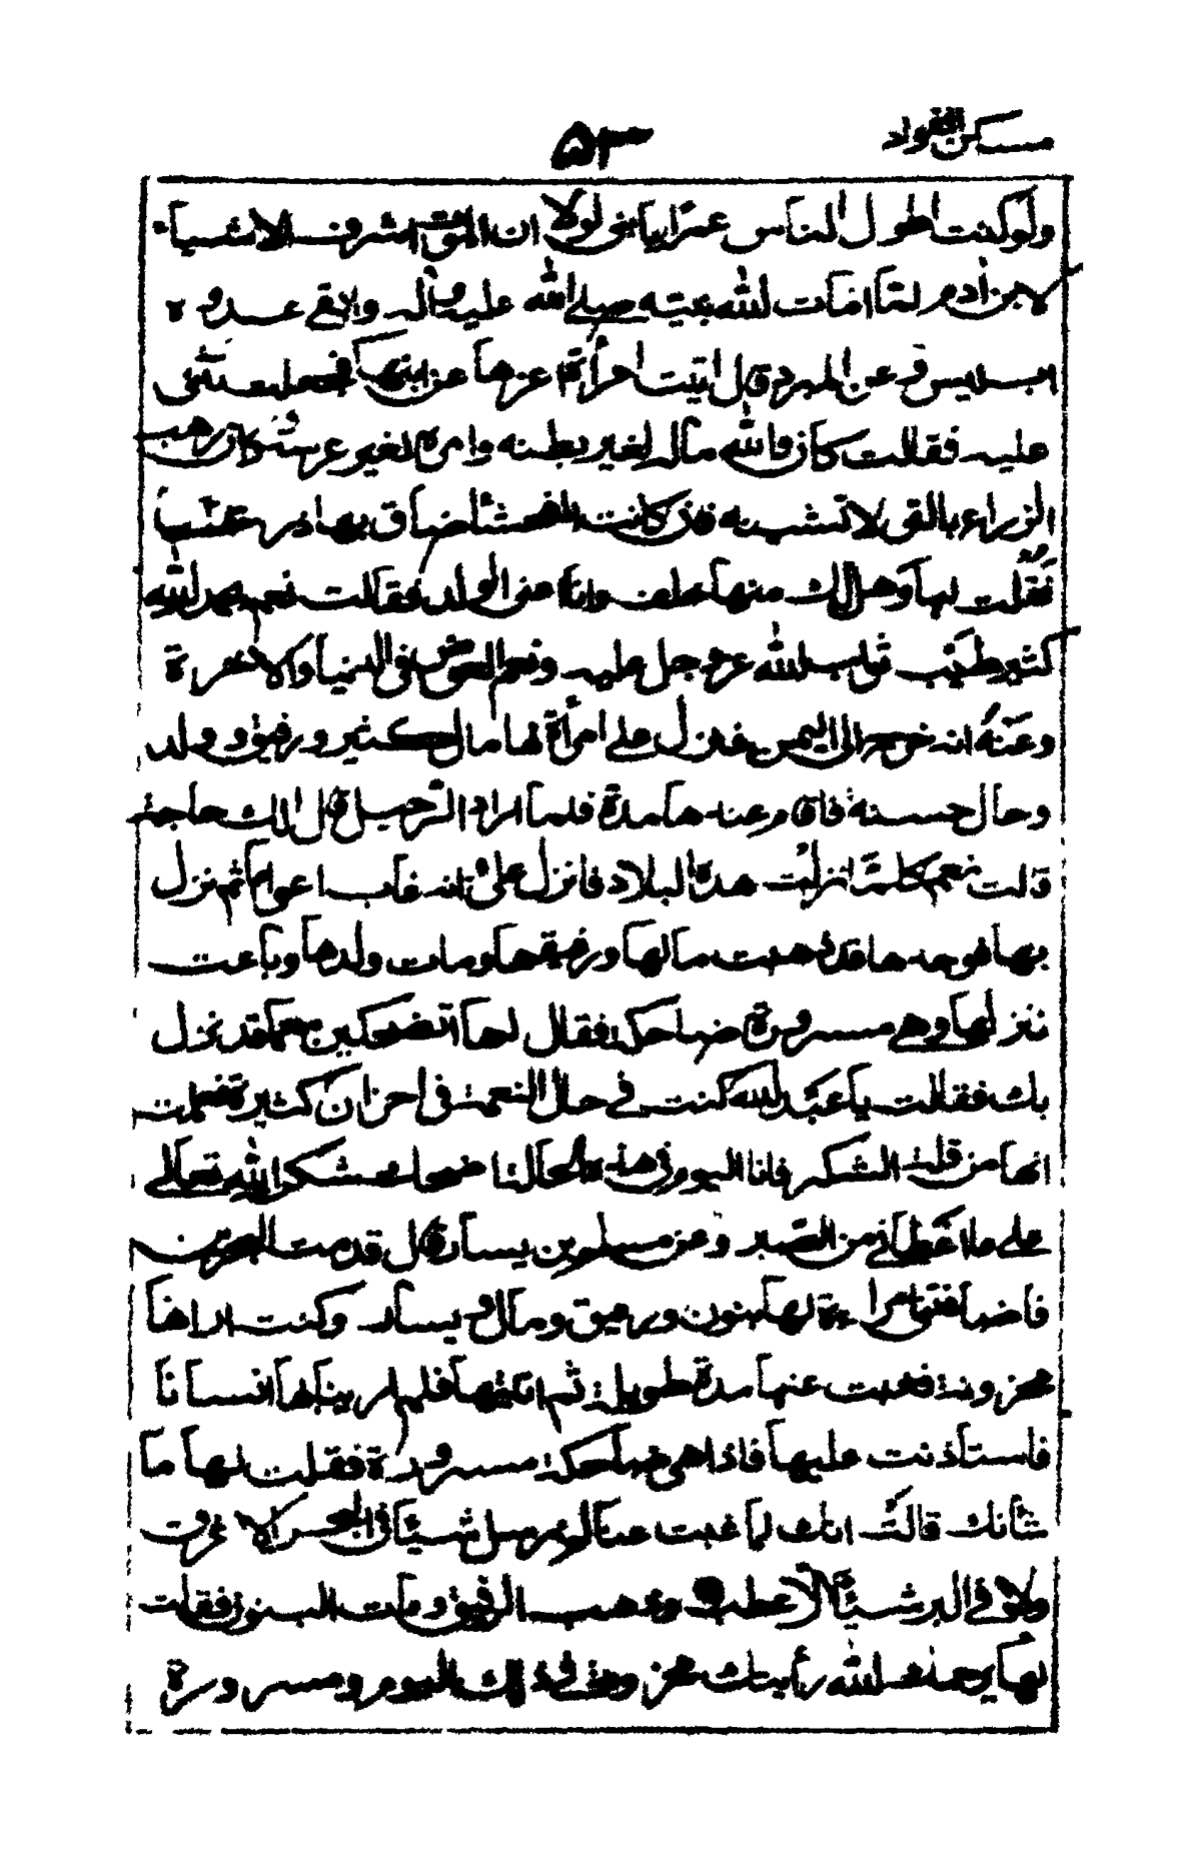 مسكن الفؤاد
٥٣
ولو كنت اطول الناس عمرا يا بني لولا ان الموت اشرف الاشياء
لابن ادم لما امات الله نبيه صلى الله عليه وآله وابقى عدوه
ابليس وعن المبرد قال اتيت امرأة اعزها عن ابنها فجعلت تثنى
عليه فقالت كان والله ماله لغير بطنه وامره لغير عرسه وكان رحب
الذراع بالتي لا تشينه فان كانت الفحشاء ضاق بها ذرعا
فقلت لها وهل لك منها خلف وانا اعنى الولد فقالت نعم بحمد الله
كثير طيب ثواب الله عز وجل عليه ونعم العوض في الدنيا والاخرة
وعنه انه خرج الى اليمن فنزل على امرأة لها مال كثير ورقيق وولد
وحال حسنة فاقام عندها مدة فلما اراد الرحيل قال الك حاجة
قالت نعم كلما نزلت هذه البلاد فانزل على ثم انه غاب اعواما ثم نزل
بها فوجدها قد ذهبت مالها ورقيقها ومات ولدها وباعت
منزلها وهي مسرورة ضاحكة فقال لها اتضحكين مع ما قد نزل
بك فقالت يا عبد الله كنت في حال النعمة في احزان كثيرة فعلمت
انها من قلة الشكر فانا اليوم في هذه الحالة اضحك شكرا لله تعالى
على ما اعطاني من الصبر وعن مسلم بن يسار قال قدمت البحرين
فاضافتني امراءة لها بنون ورقيق ومال ويسار وكنت اراها
محزونة فغبت عنها مدة طويلة ثم اتيتها فلم ار ببابها انسانا
فاستأذنت عليها فاذا هي ضاحكة مسرورة فقلت لها ما
شأنك قالت انك لما غبت عنا لم نرسل شيئا في البحر الا غرق
ولا في البر شيئا الا عطب وذهب الرقيق ومات البنون فقلت
لها يرحمك الله رأيتك محزونة في ذلك اليوم ومسرورة